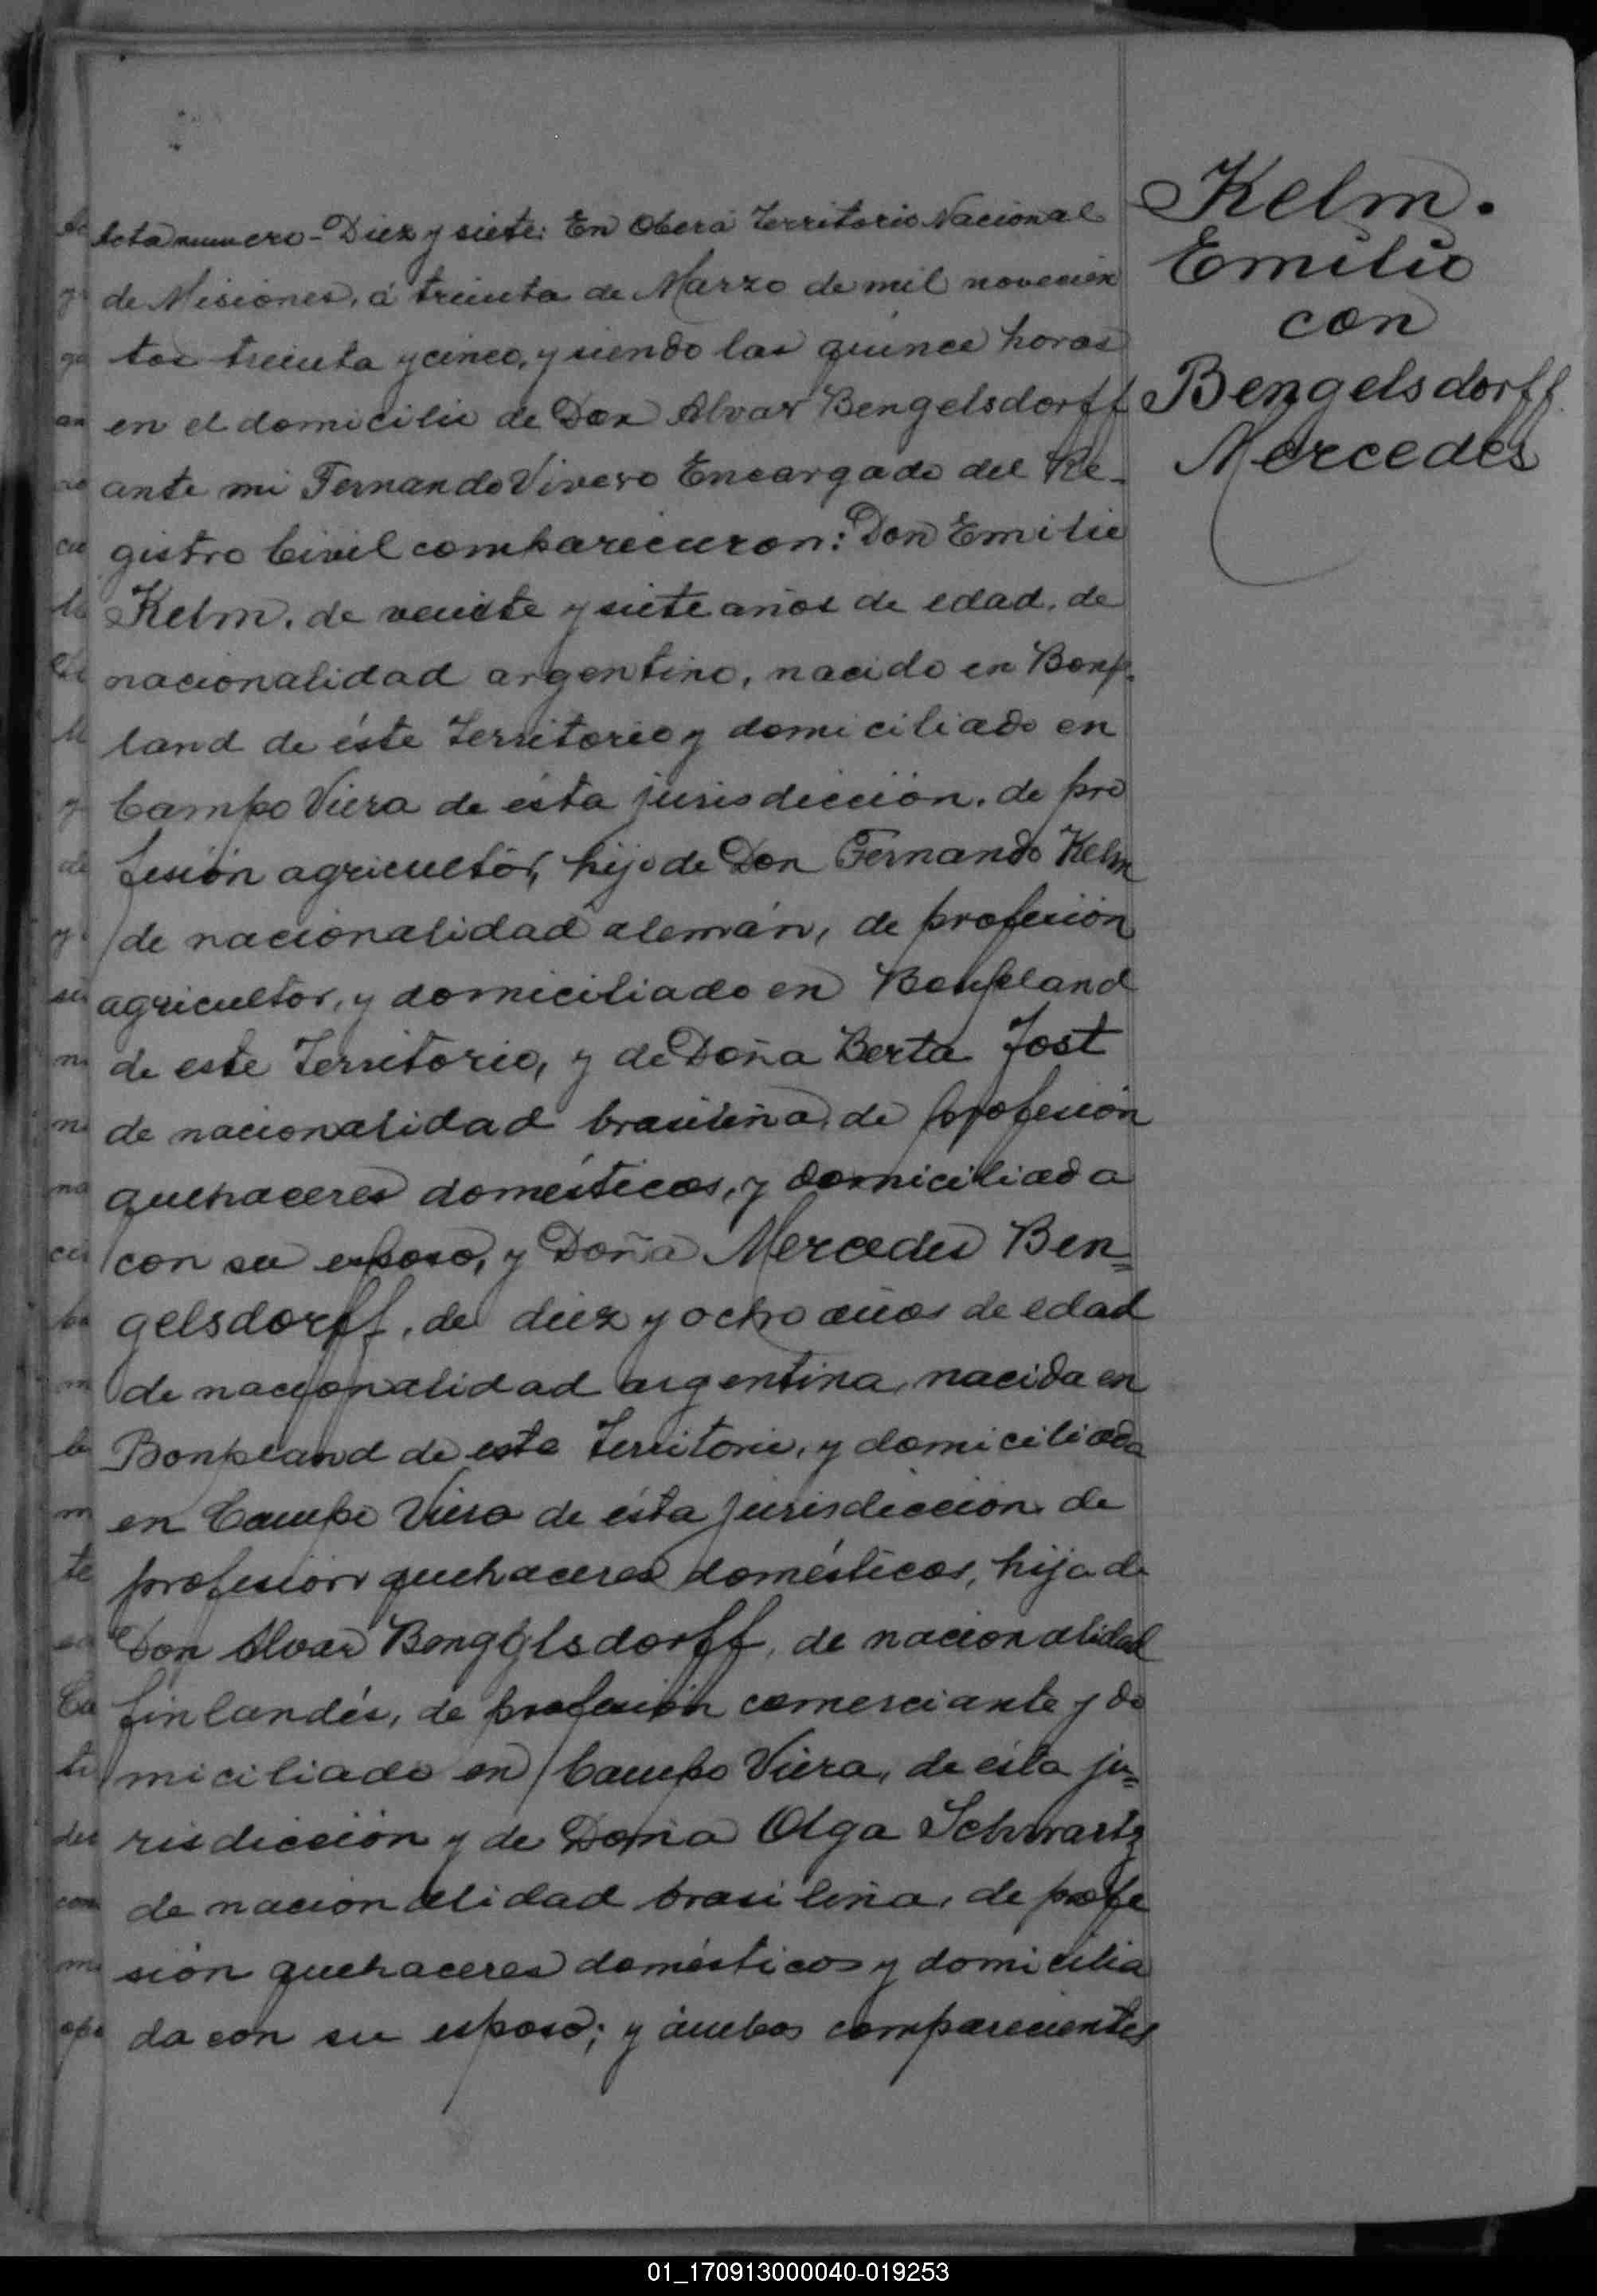 Kelm.
Emilio
con
Bengelsdorff
Mercedes
Acta numero - Diez y siete: En Oberá Territorio Nacional
de Misiones, á treinta de Marzo de mil novecien
tos treinta y cinco, y siendo las quince horas
en el domicilio de Don Alvar Bengelsdorff
ante mi Fernando Vivero Encargado del Re-
gistro Civil comparecieron: Don Emilio
Kelm, de veinte y siete años de edad, de
nacionalidad argentino, nacido en Bonp-
land de éste Territorio y domiciliado en
Campo Viera de ésta jurisdicción, de pro
fesión agricultor, hijo de Don Fernando Kelm
de nacionalidad alemán, de profesión
agricultor, y domiciliado en Bonpland
de este Territorio, y de Doña Berta Jost
de nacionalidad brasileña, de profesión
quehaceres domésticos, y domiciliada
con su esposo, y Doña Mercedes Ben=
gelsdorff, de diez y ocho años de edad
de nacionalidad argentina, nacida en
Bonpland de este Territorio, y domiciliada
en Campo Viera de ésta jurisdicción de
profesión quehaceres domésticos, hija de
Don Alvar Bengelsdorff, de nacionalidad
finlandés, de profesión comerciante y do
miciliado en Campo Viera, de ésta ju=
risdicción y de Doña Olga Schwartz
de nacionalidad brasileña, de profe
sión quehaceres domésticos y domicilia
da con su esposo; y ámbos comparecientes
01_170913000040-019253